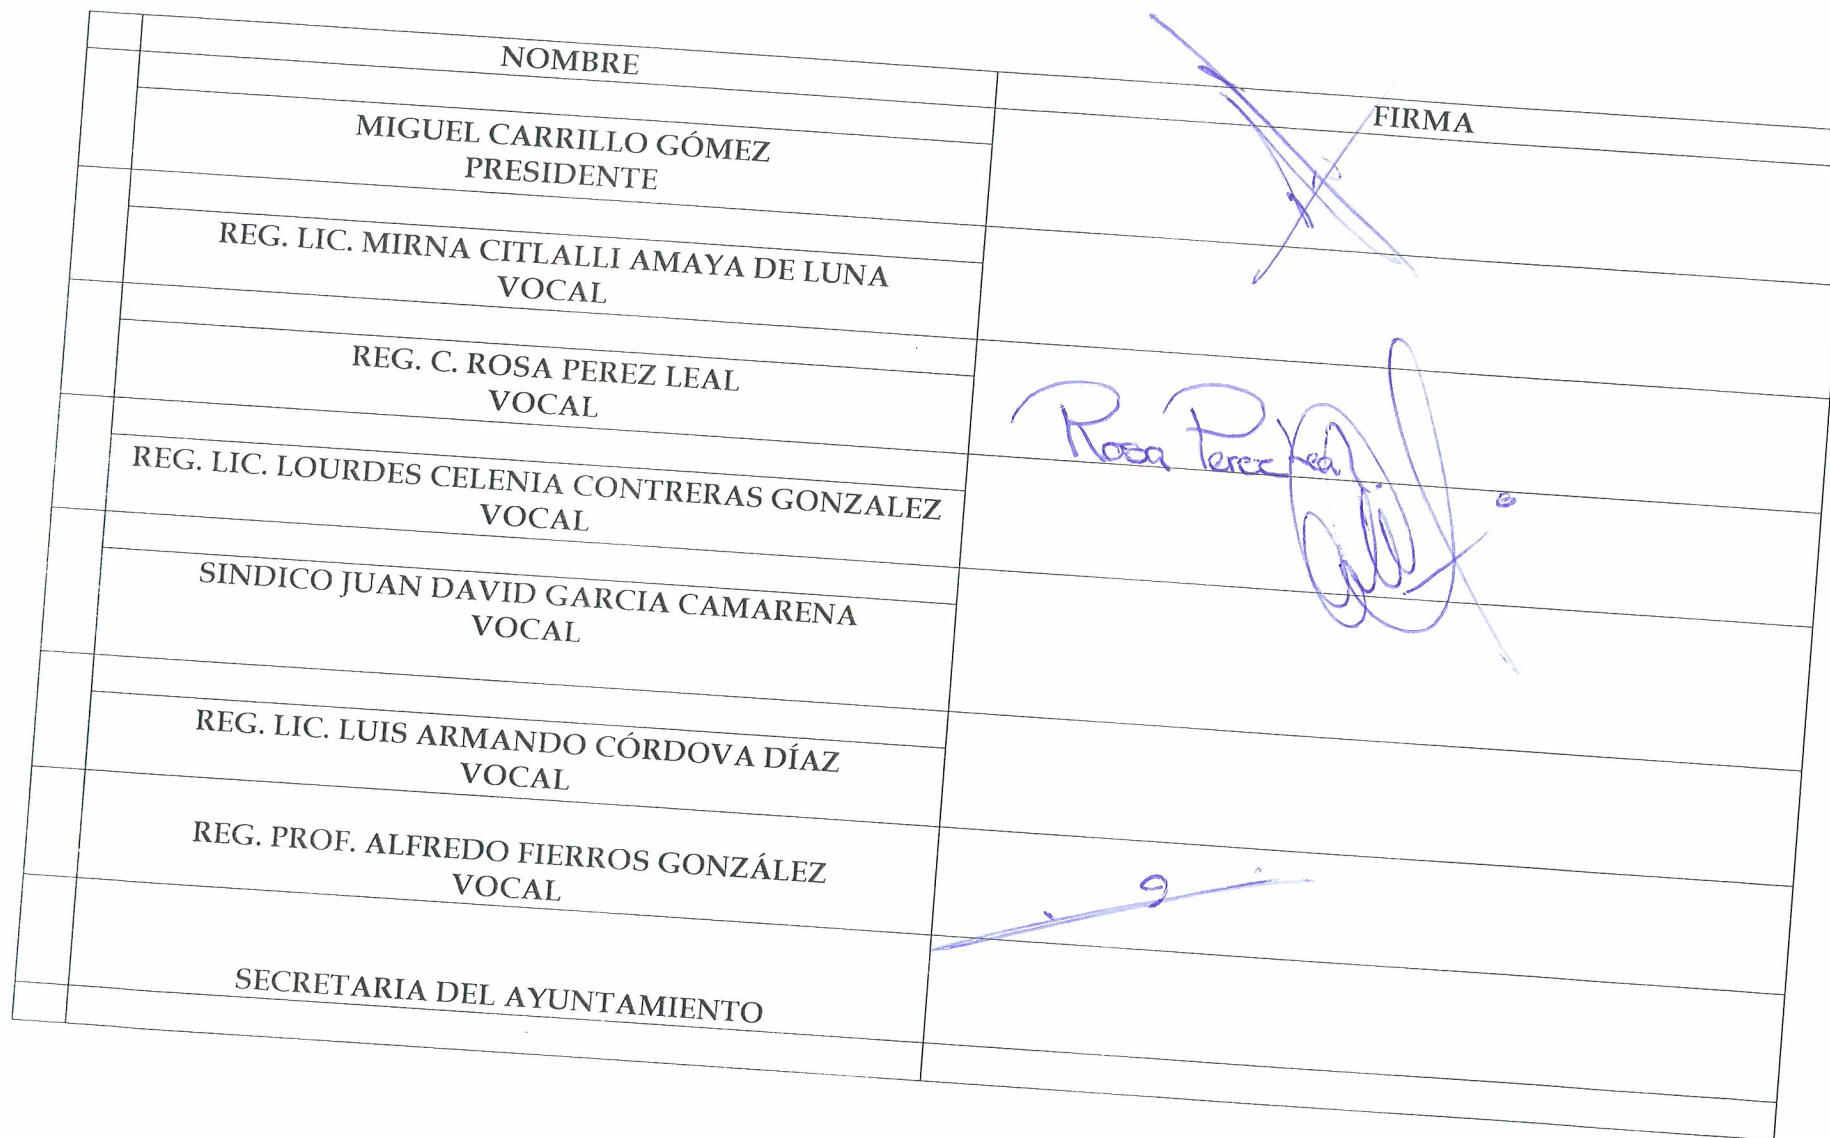 NOMBRE
FIRMA
MIGUEL CARRILLO GÓMEZ
PRESIDENTE
REG. LIC. MIRNA CITLALLI AMAYA DE LUNA
VOCAL
REG. C. ROSA PEREZ LEAL
VOCAL
Rosa Perez Leal
REG. LIC. LOURDES CELENIA CONTRERAS GONZALEZ
VOCAL
SINDICO JUAN DAVID GARCIA CAMARENA
VOCAL
REG. LIC. LUIS ARMANDO CÓRDOVA DÍAZ
VOCAL
REG. PROF. ALFREDO FIERROS GONZÁLEZ
VOCAL
SECRETARIA DEL AYUNTAMIENTO